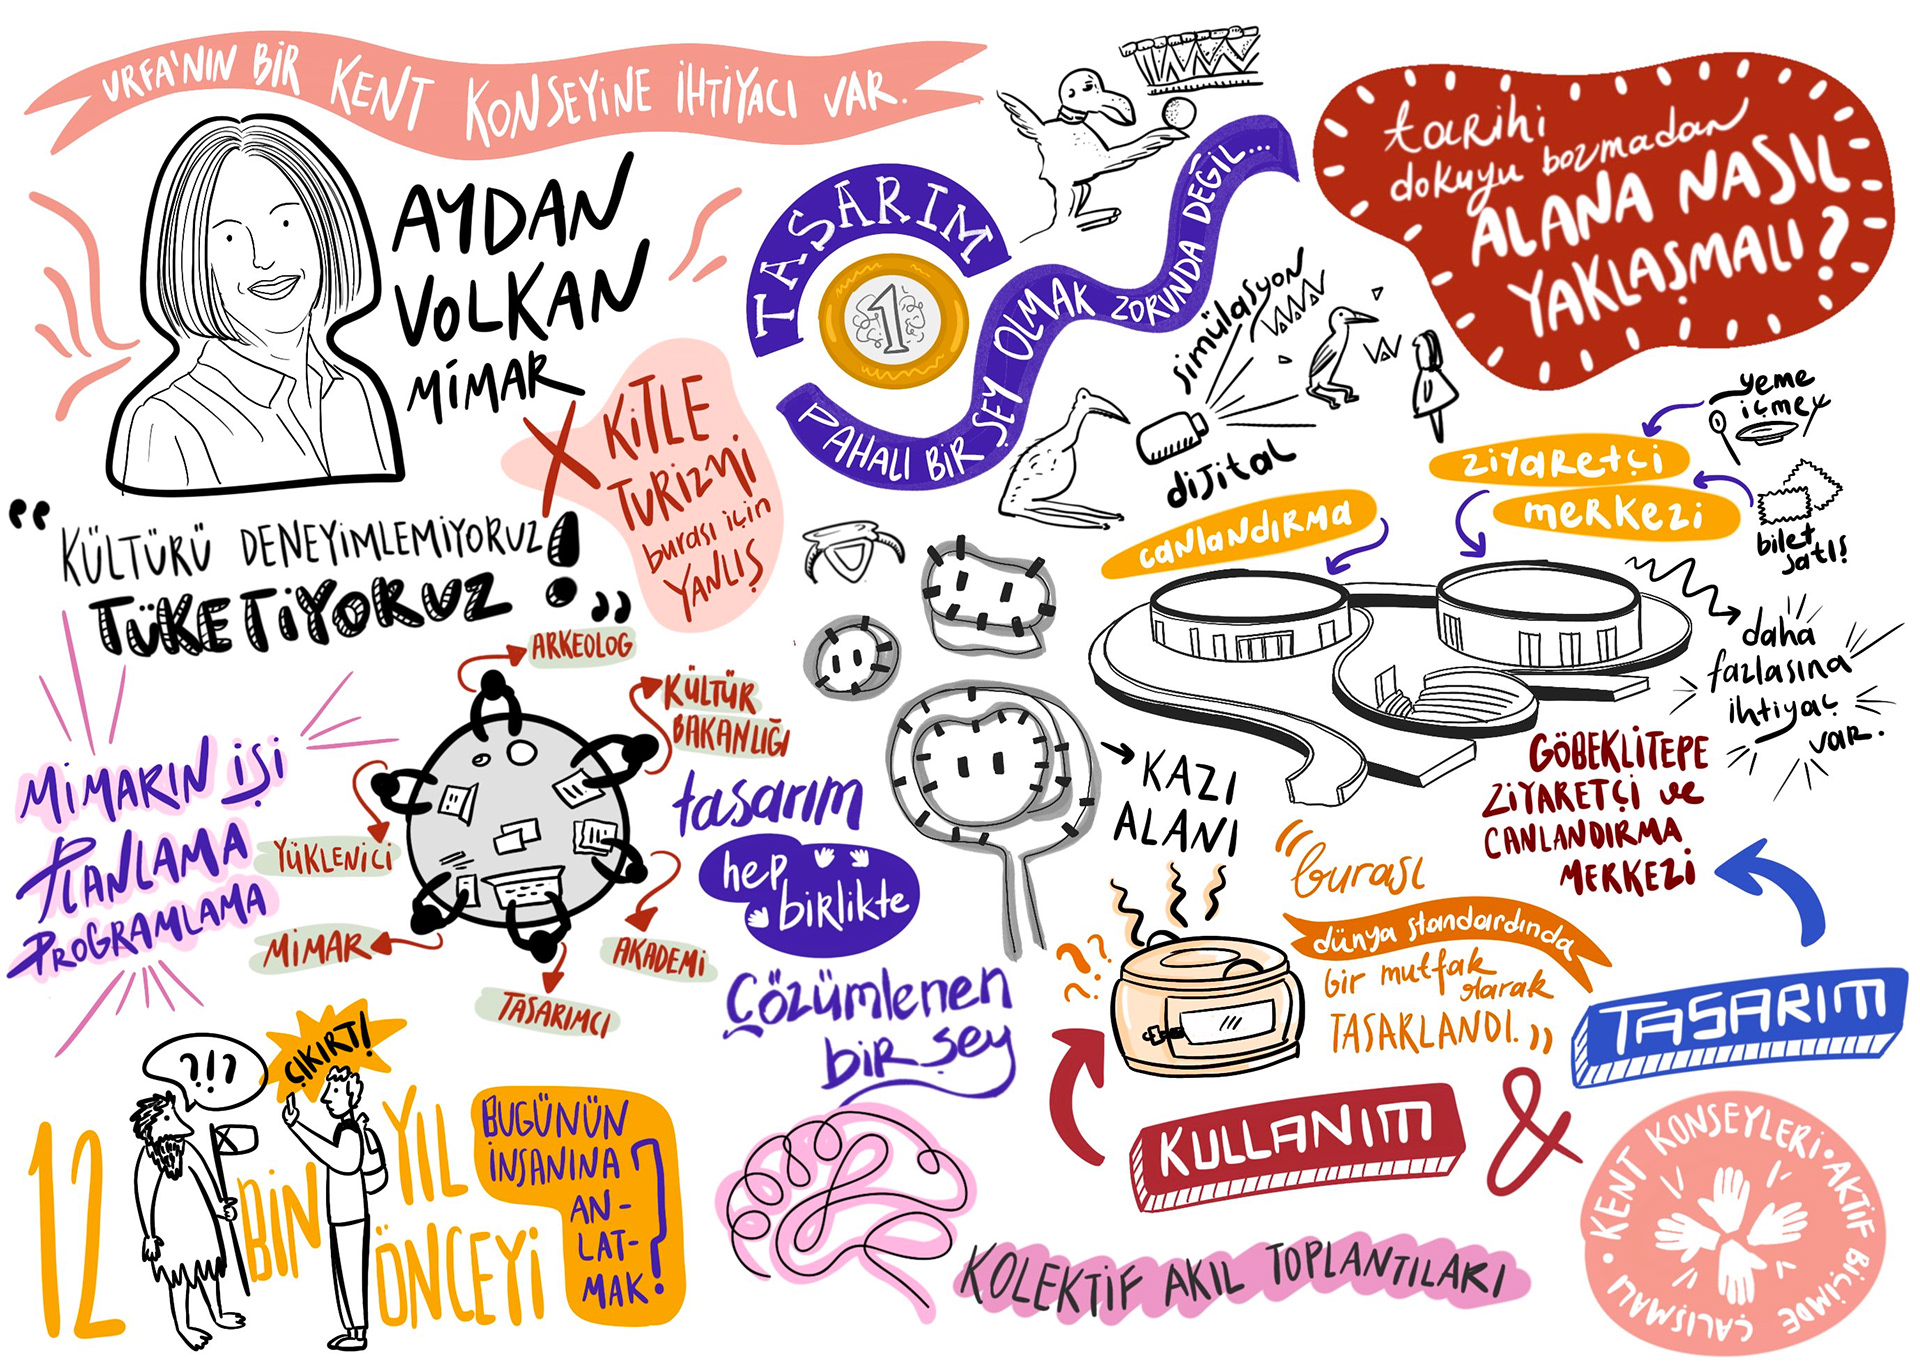 URFA'NIN BİR KENT KONSEYİNE İHTİYACI VAR.
AYDAN
VOLKAN
MİMAR
KİTLE
TURİZMİ
burası için
YANLIŞ
"KÜLTÜRÜ DENEYİMLEMİYORUZ
TÜKETİYORUZ!"
TASARIM
1
PAHALI BİR ŞEY OLMAK ZORUNDA DEĞİL...
simülasyon
dijital
tarihi
dokuyu bozmadan
ALANA NASIL
YAKLAŞMALI?
yeme
içmey
ziyaretçi
merkezi
bilet
satış
canlandırma
daha
fazlasına
ihtiyaç
var.
GÖBEKLİTEPE
ZİYARETÇİ ve
CANLANDIRMA
MERKEZİ
KAZI
ALANI
ARKEOLOG
KÜLTÜR
BAKANLIĞI
YÜKLENİCİ
MİMAR
AKADEMİ
TASARIMCI
MİMARIN İŞİ
PLANLAMA
PROGRAMLAMA
tasarım
hep
birlikte
Çözümlenen
bir şey
???
"burası
dünya standardında
bir mutfak
olarak
TASARLANDI."
TASARIM
&
KULLANIM
?!?
ÇIKIRT!
12 BİN YIL
ÖNCEYİ
BUGÜNÜN
İNSANINA
AN-
LAT-
MAK?
KOLEKTİF AKIL TOPLANTILARI
• KENT KONSEYLERİ • AKTİF BİÇİMDE ÇALIŞMALI